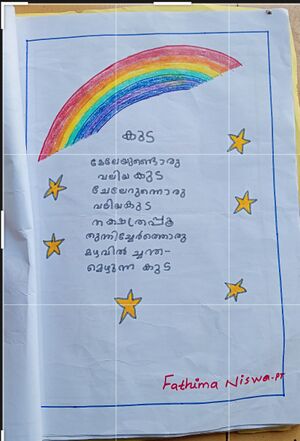 കുട
മേലേയുണ്ടൊരു
വലിയ കുട
ചേലേറുന്നൊരു
വലിയകുട
നക്ഷത്രപ്പൂ
തുന്നിച്ചേർത്തൊരു
മഴവിൽ ച്ചന്ത-
മെഴുന്ന കുട
Fathima Niswa.PT